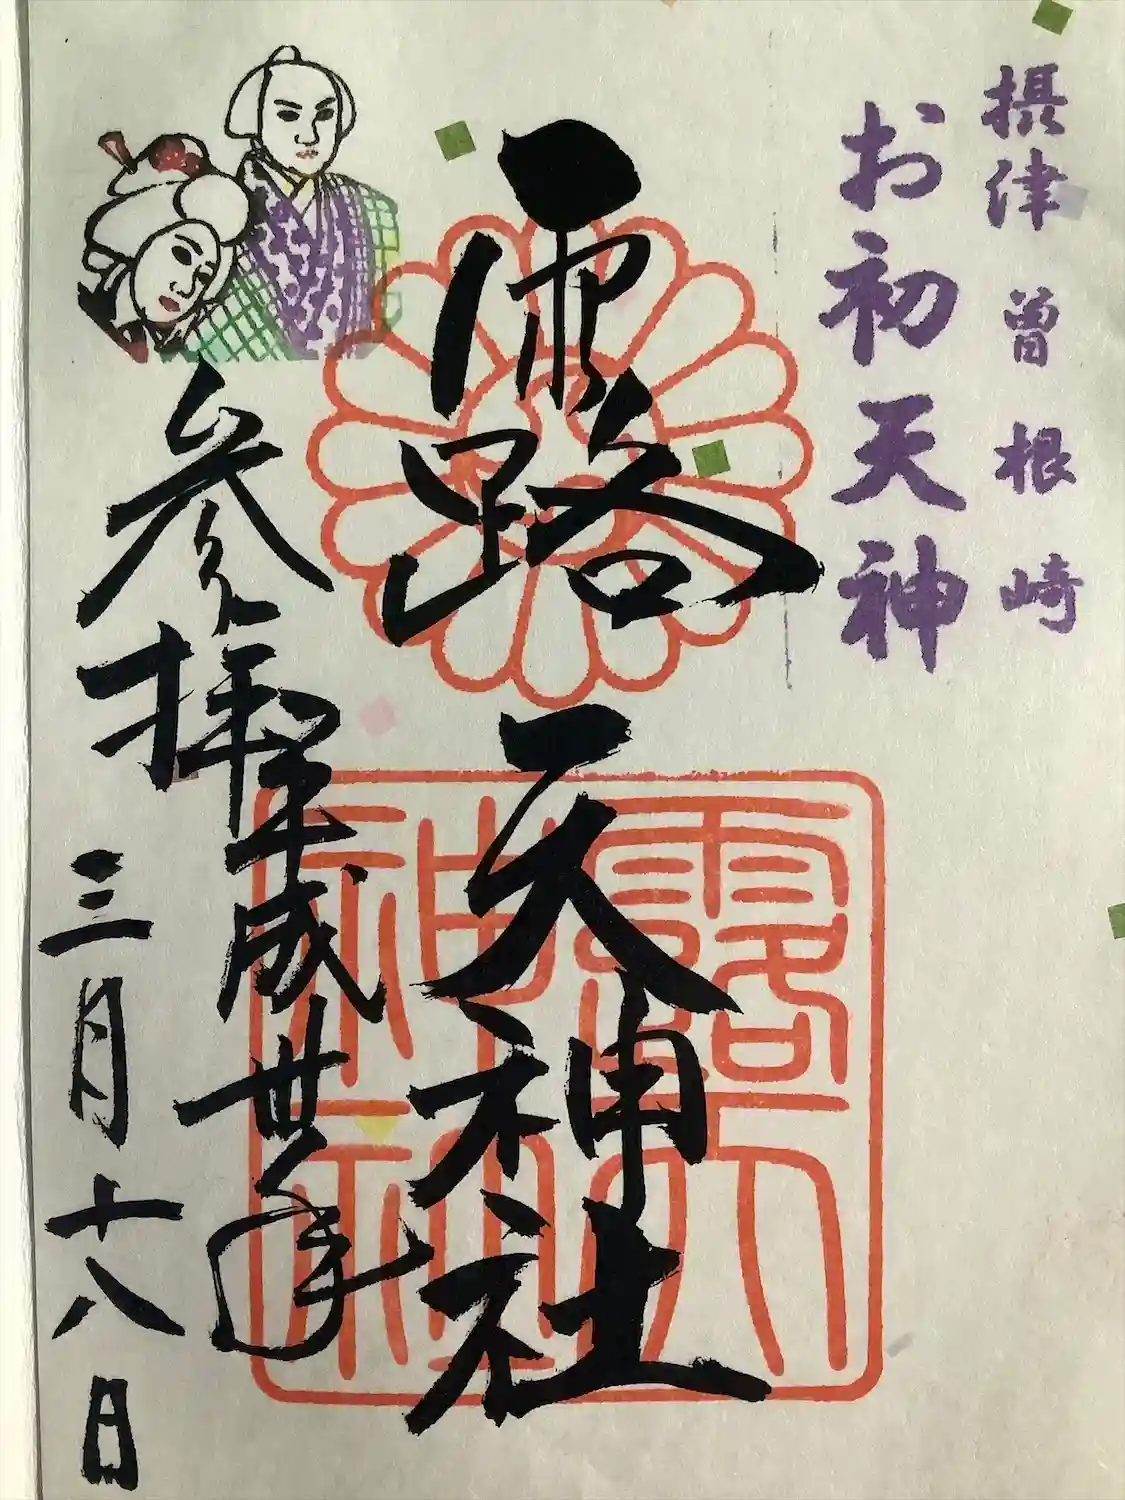 摂津 曽根崎
お初天神
露天神社
露天神社
参拝
平成丗年
三月十八日